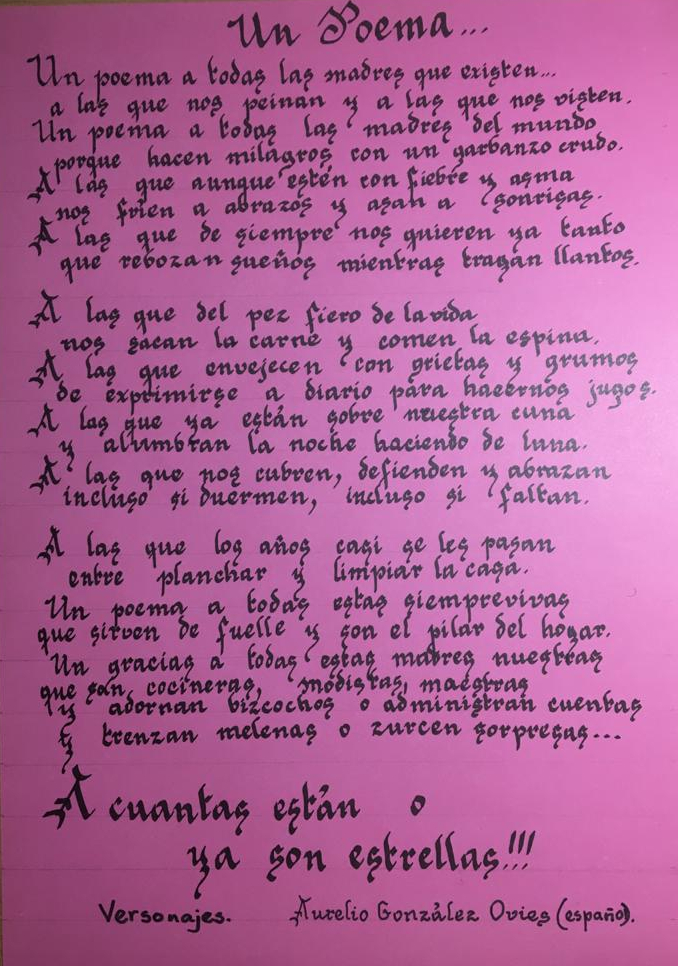 Un Poema...
Un poema a todas las madres que existen...
a las que nos peinan y a las que nos visten.
Un poema a todas las madres del mundo
porque hacen milagros con un garbanzo crudo.
A las que aunque estén con fiebre y asma
nos fríen a abrazos y asan a sonrisas.
A las que de siempre nos quieren ya tanto
que rebozan sueños mientras tragan llantos.
A las que del pez fiero de la vida
nos sacan la carne y comen la espina.
A las que envejecen con grietas y grumos
de exprimirse a diario para hacernos jugos.
A las que ya están sobre nuestra cuna
y alumbran la noche haciendo de luna.
A las que nos cubren, defienden y abrazan
incluso si duermen, incluso si faltan.
A las que los años casi se les pasan
entre planchar y limpiar la casa.
Un poema a todas estas siemprevivas
que sirven de fuelle y son el pilar del hogar.
Un gracias a todas estas madres nuestras
que son cocineras, modistas, maestras
y adornan bizcochos o administran cuentas
y trenzan melenas o zurcen sorpresas...
A cuantas están o
ya son estrellas!!!
Versonajes. Aurelio González Ovies (español).